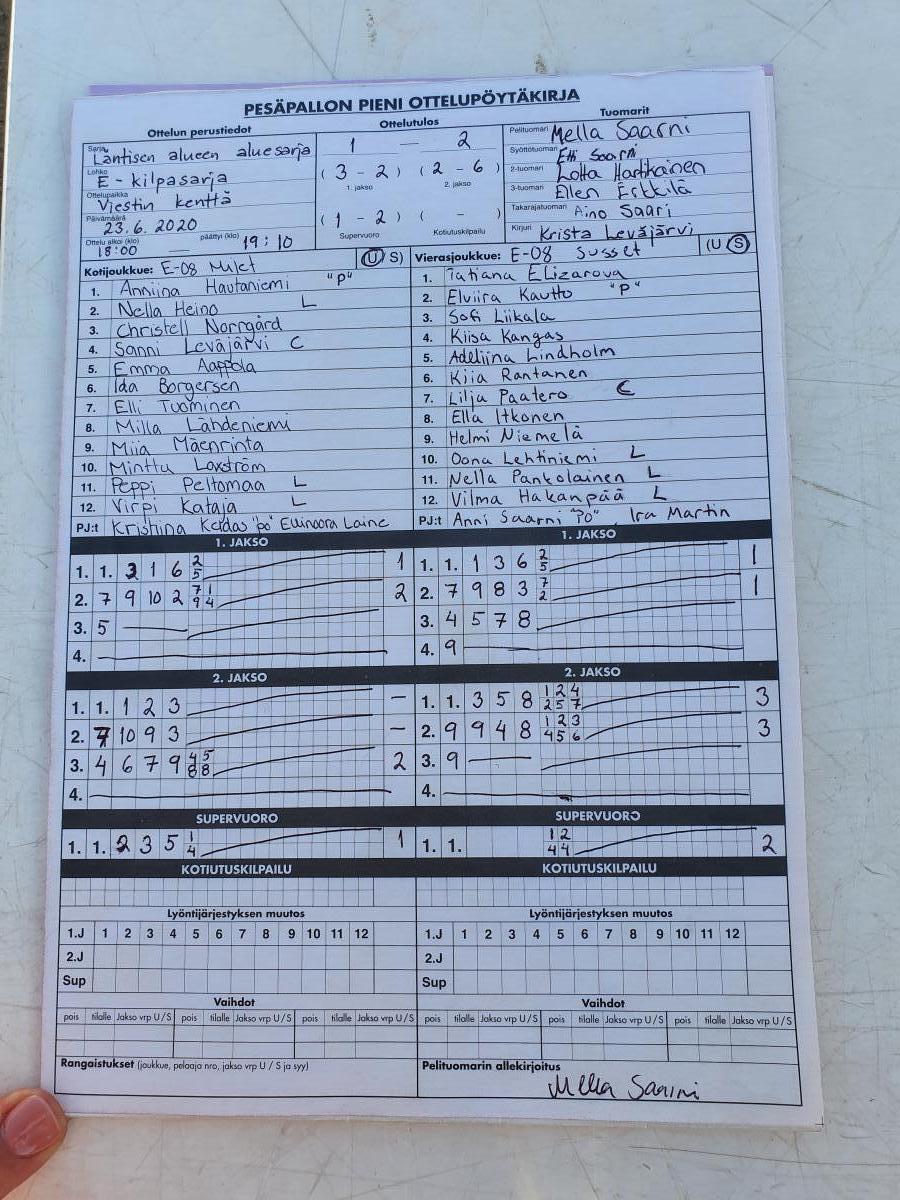 PESÄPALLON PIENI OTTELUPÖYTÄKIRJA
Ottelun perustiedot
Sarja Läntisen alueen aluesarja
Lohko E - kilpasarja
Ottelupaikka Viestin kenttä
Päivämäärä 23.6. 2020
Ottelu alkoi (klo) 18:00 päättyi (klo) 19:10
Ottelutulos
1 — 2
( 3 - 2 ) ( 2 - 6 )
1. jakso 2. jakso
( 1 - 2 ) ( - )
Supervuoro Kotiutuskilpailu
Tuomarit
Pelituomari Mella Saarni
Syöttötuomari Etti Saarni
2-tuomari Lotta Hartikainen
3-tuomari Ellen Erkkilä
Takarajatuomari Aino Saari
Kirjuri Krista Leväjärvi
Kotijoukkue: E-08 Miset (U S)
1. Anniina Hautaniemi "P"
2. Nella Heino L
3. Christell Norrgård
4. Sanni Leväjärvi C
5. Emma Aappola
6. Ida Borgersen
7. Elli Tuominen
8. Milla Lähdeniemi
9. Miia Mäenrinta
10. Minttu Loxström
11. Peppi Peltomaa L
12. Virpi Kataja L
PJ:t Kristiina "po" Eliinoora Laine
Vierasjoukkue: E-08 Susset (U S)
1. Tatiana Elizarova
2. Elviira Kautto "P"
3. Sofi Liikala
4. Kiisa Kangas
5. Adeliina Lindholm
6. Kiia Rantanen
7. Lilja Paatero C
8. Ella Itkonen
9. Helmi Niemelä
10. Oona Lehtiniemi L
11. Nella Pankolainen L
12. Vilma Hakanpää L
PJ:t Anni Saarni "PO" Ira Martin
1. JAKSO
1. 1. 3 1 6 2/5 1
2. 7 9 10 2 7/9 1/4 2
3. 5
4.
1. JAKSO
1. 1. 1 3 6 2/5 1
2. 7 9 8 3 7/2 1
3. 4 5 7 8
4. 9
2. JAKSO
1. 1. 1 2 3 –
2. 7 10 9 3 –
3. 4 6 7 9 4/8 5/8 2
4.
2. JAKSO
1. 1. 3 5 8 1/2 2/5 4/7 3
2. 9 9 4 8 1/4 2/5 3/6 3
3. 9
4.
SUPERVUORO
1. 1. 2 3 5 1/4 1
SUPERVUORO
1. 1. 1/4 2/4 2
KOTIUTUSKILPAILU
KOTIUTUSKILPAILU
Lyöntijärjestyksen muutos
1.J 1 2 3 4 5 6 7 8 9 10 11 12
2.J
Sup
Lyöntijärjestyksen muutos
1.J 1 2 3 4 5 6 7 8 9 10 11 12
2.J
Sup
Vaihdot
pois tilalle Jakso vrp U / S pois tilalle Jakso vrp U / S pois tilalle Jakso vrp U / S
Vaihdot
pois tilalle Jakso vrp U / S pois tilalle Jakso vrp U / S pois tilalle Jakso vrp U / S
Rangaistukset (joukkue, pelaaja nro, jakso vrp U / S ja syy)
Pelituomarin allekirjoitus
Mella Saarni